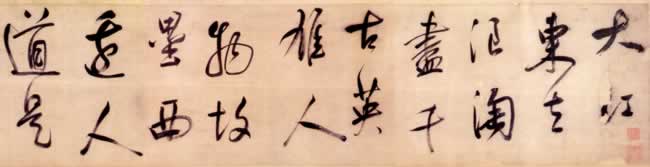 大江
東去
浪淘
盡千
古英
雄人
物故
壘西
邊人
道是